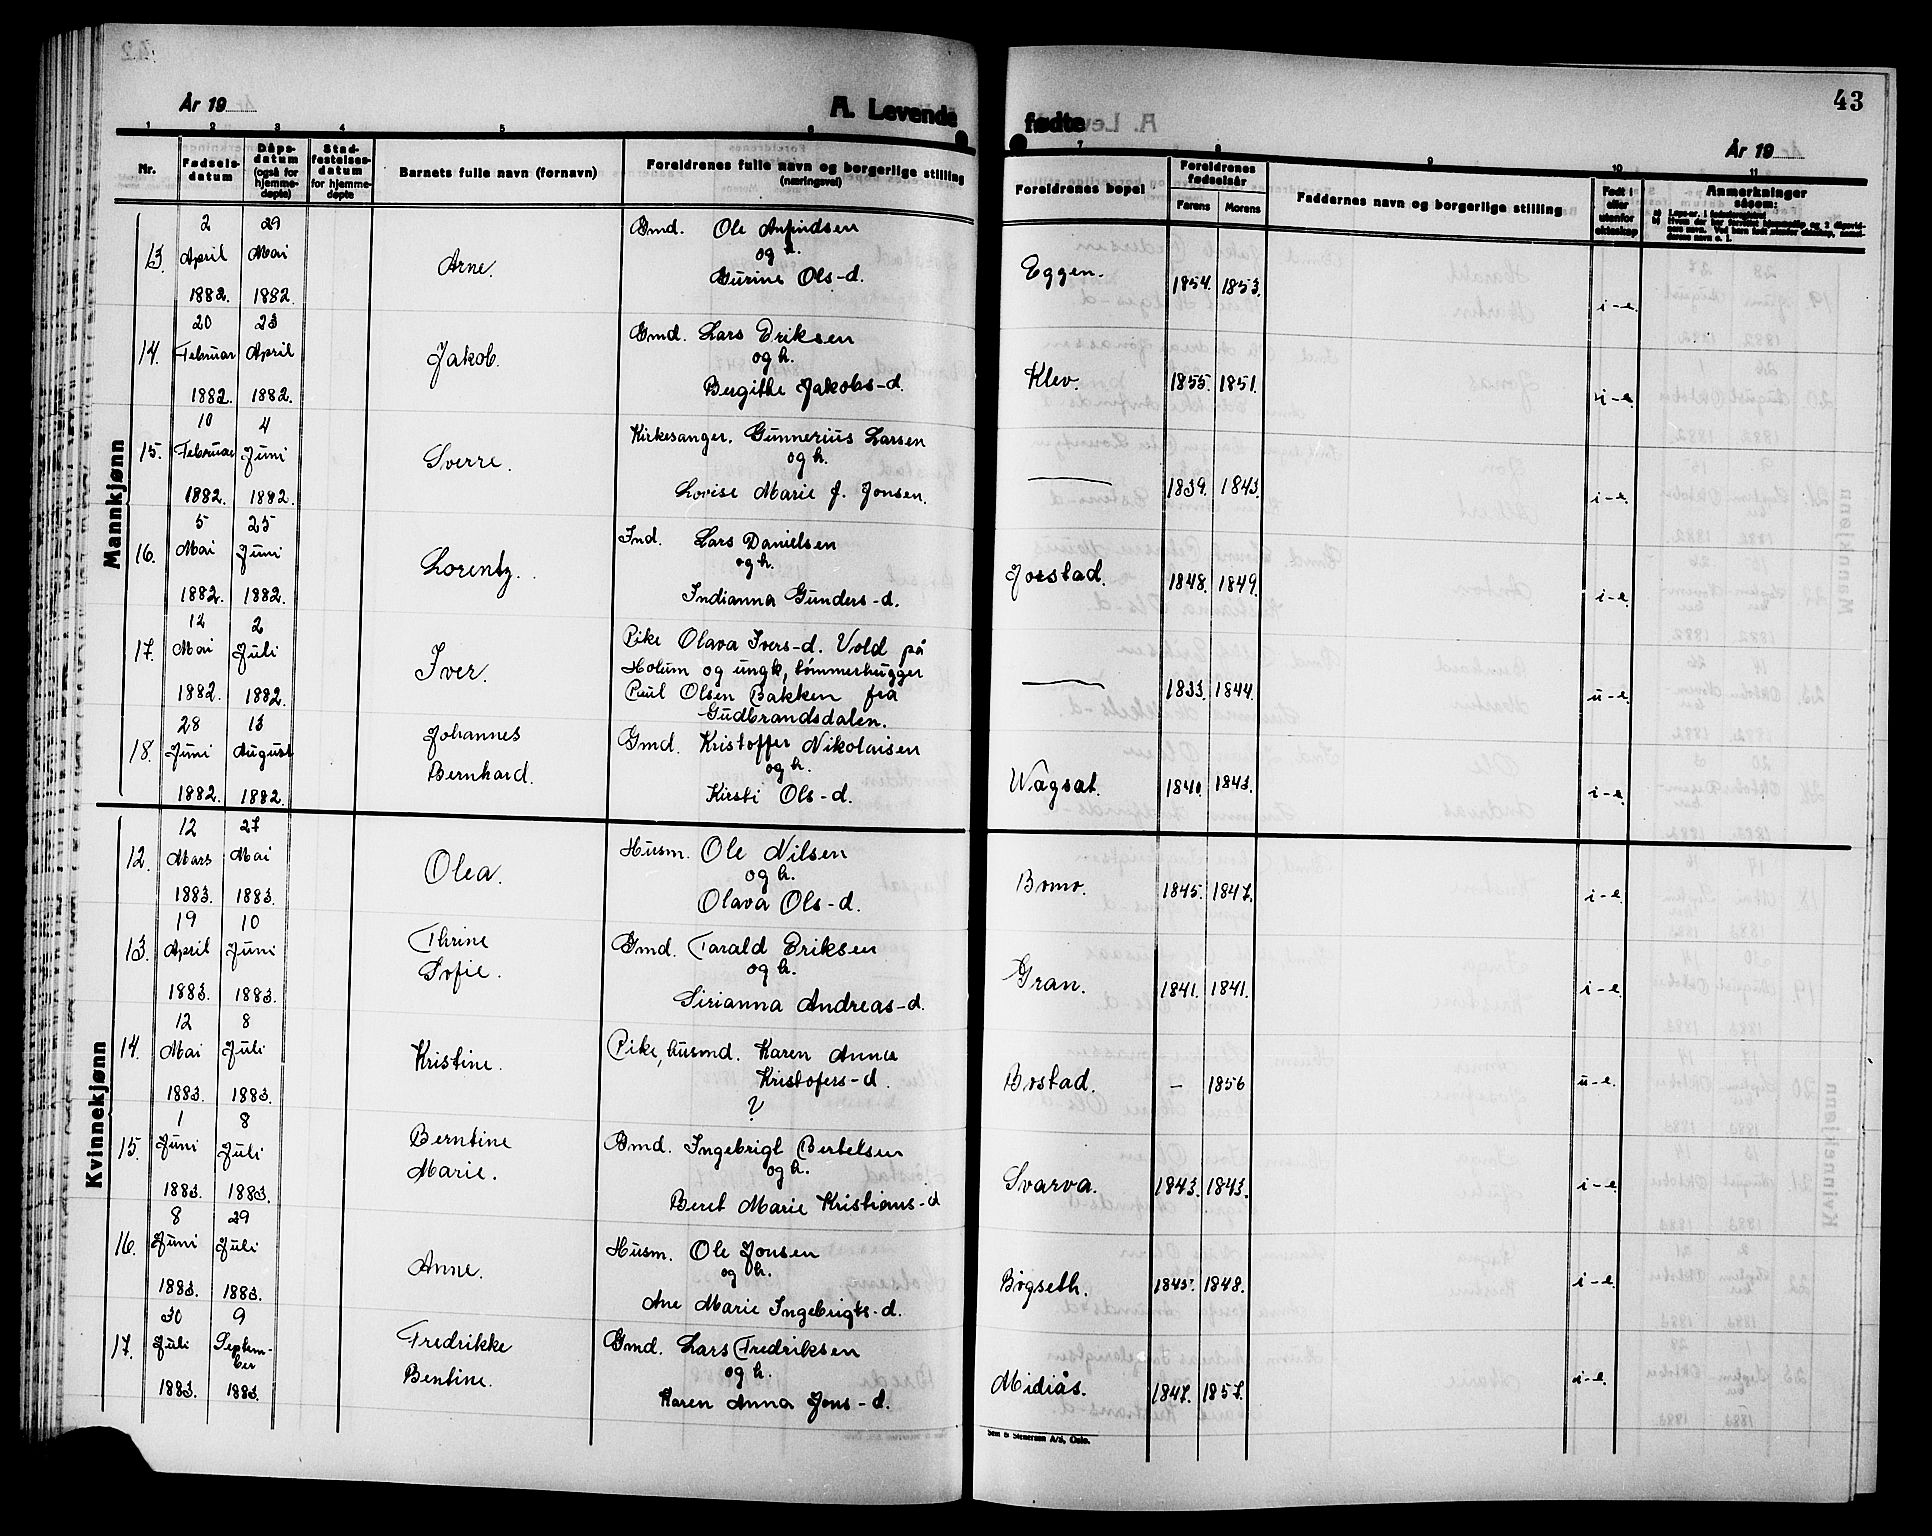 43
År 19
A. Levende fødte
År 19
1 2 3 4 5 6 7 8 9 10 11
Nr. Fødsels-datum Dåps-datum (også for hjemme-døpte) Stad-festelses-datum for hjemme-døpte Barnets fulle navn (fornavn) Foreldrenes fulle navn og borgerlige stilling (næringsvei) Foreldrenes bopel Foreldrenes fødselsår Farens Morens Faddernes navn og borgerlige stilling Født i eller utenfor ekteskap Anmerkninger såsom:
Mannkjønn
13. 2 April 1882. 29 Mai 1882. Arne. Gmd. Ole Anfindsen og h. Gurine Ols-d. Eggen. 1854. 1853. i-e.
14. 20 Februar 1882. 23 April 1882. Jakob. Gmd. Lars Eriksen og h. Bergithe Jakobs-d. Klev. 1855. 1851. i-e.
15. 10 Februar 1882. 4 Juni 1882. Sverre. Kirkesanger. Gunnerius Larsen og h. Lovise Marie f. Jonsen. — 1839. 1843. i-e.
16. 5 Mai 1882. 25 Juni 1882. Lorentz. Ind. Lars Danielsen og h. Indianna Gunders-d. Jorstad. 1848. 1849. i-e.
17. 12 Mai 1882. 2 Juli 1882. Iver. Pike Olava Ivers-d. Vold på Holum og ungk, tømmerhugger Paul Olsen Bakken fra Gudbrandsdalen. — 1833. 1844. u-e.
18. 28 Juni 1882. 13 August 1882. Johannes Bernhard. Gmd. Kristoffer Nikolaisen og h. Kirsti Ols-d. Wågsat. 1840. 1843. i-e.
Kvinnekjønn
12. 12 Mars 1883. 27 Mai 1883. Olea. Husm. Ole Nilsen og h. Olava Ols-d. Bomo. 1845. 1847. i-e.
13. 19 April 1883. 10 Juni 1883. Thrine Sofie. Gmd. Tarald Eriksen og h. Sirianna Andreas-d. Gran. 1841. 1841. i-e.
14. 12 Mai 1883. 8 Juli 1883. Kristine. Pike, husmd. Karen Anna Kristofers-d. ? Bostad. — 1856 u-e.
15. 1 Juni 1883. 8 Juli 1883. Berntine Marie. Gmd. Ingebrigt Bertelsen og h. Beret Marie Kristians-d Svarva. 1843. 1843. i-e.
16. 8 Juni 1883. 29 Juli 1883. Anne. Husm. Ole Jonsen og h. Ane Marie Ingebrigts-d. Bøgseth. 1845. 1848. i-e.
17. 30 Juli 1883. 9 September 1883. Fredrikke Bentine. Gmd. Lars Fredriksen og h. Karen Anna Jons-d. Midiås. 1847. 1857. i-e.
Sem & Stenersen A/S, Oslo.